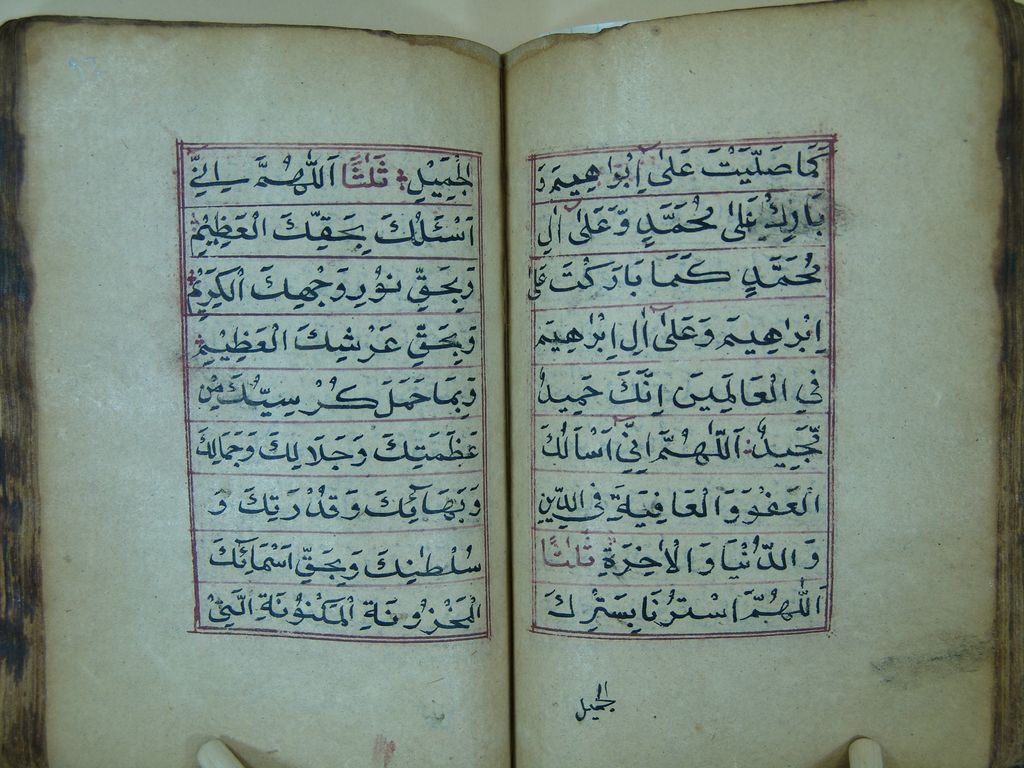 كَمَا صَلَّيْتَ عَلٰى اِبْرٰاهِيمَ وَ
بَارِكْ عَلٰى مُحَمَّدٍ وَّعَلٰى اٰلِ
مُحَمَّدٍ كَمَا بَارَكْتَ عَلٰى
اِبْرٰاهِيمَ وَعَلٰى اٰلِ اِبْرٰاهِيمَ
فِي الْعَالَمِينَ اِنَّكَ حَمِيدٌ
مَّجِيدٌ اَللّٰهُمَّ اِنِّي اَسْاَلُكَ
الْعَفْوَ وَالْعَافِيَةَ فِي الدِّينِ
وَالدُّنْيَا وَالْاٰخِرَةِ ثَلٰثًا
اَللّٰهُمَّ اسْتُرْنَا بِسَتْرِكَ
الجميل
الْجَمِيْلِ ثَلٰثًا اَللّٰهُمَّ اِنِّي
اَسْئَلُكَ بِحَقِّكَ الْعَظِيْمِ
وَبِحَقِّ نُوْرِ وَجْهِكَ الْكَرِيْمِ
وَبِحَقِّ عَرْشِكَ الْعَظِيْمِ
وَبِمَا حَمَلَ كُرْسِيُّكَ مِنْ
عَظَمَتِكَ وَجَلَالِكَ وَجَمَالِكَ
وَبَهَائِكَ وَقُدْرَتِكَ وَ
سُلْطٰنِكَ وَبِحَقِّ اَسْمَائِكَ
الْمَخْزُونَةِ الْمَكْنُونَةِ الَّتِيْ